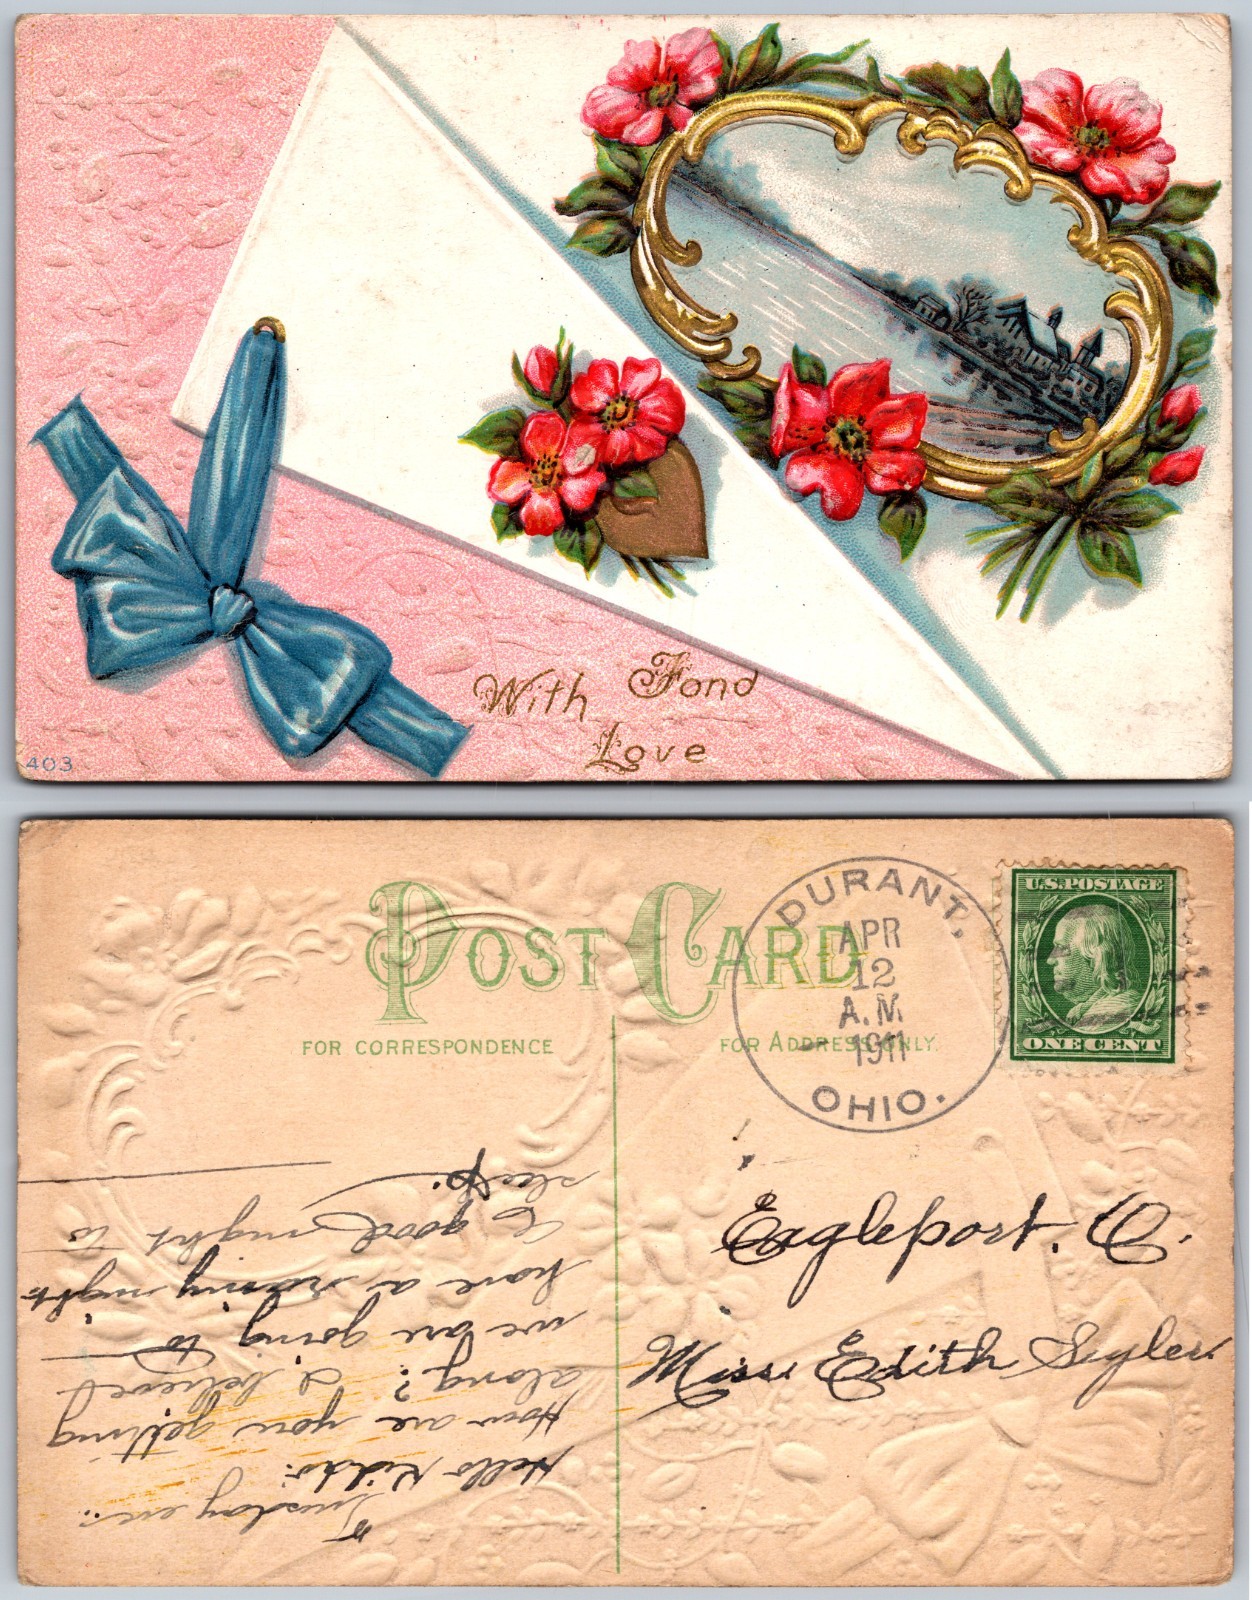 With Fond
Love
403
POST CARD
FOR CORRESPONDENCE
FOR ADDRESS ONLY.
DURANT,
APR
12
A.M.
1911
OHIO.
U.S. POSTAGE
ONE CENT
Eagleport. O.
Miss. Edith Seyler.
Tuesday eve..
Hello Kiddo.
How are you getting
along? I believed
we are going to
have a rainy night
a good night to
sleep.